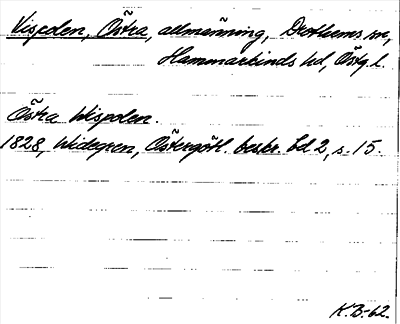 Vispolen, Östra, allmänning, Drothems sn,
Hammarkinds hd, Östg. l.
Östra Wispolen.
1828, Widegren, Östergötl. beskr. bd 2, s. 15.
K.B-62.